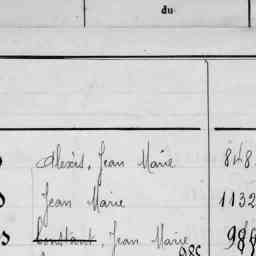 du
Alexis, Jean Marie 848
Jean Marie 1132
Constant, Jean Marie 988
985